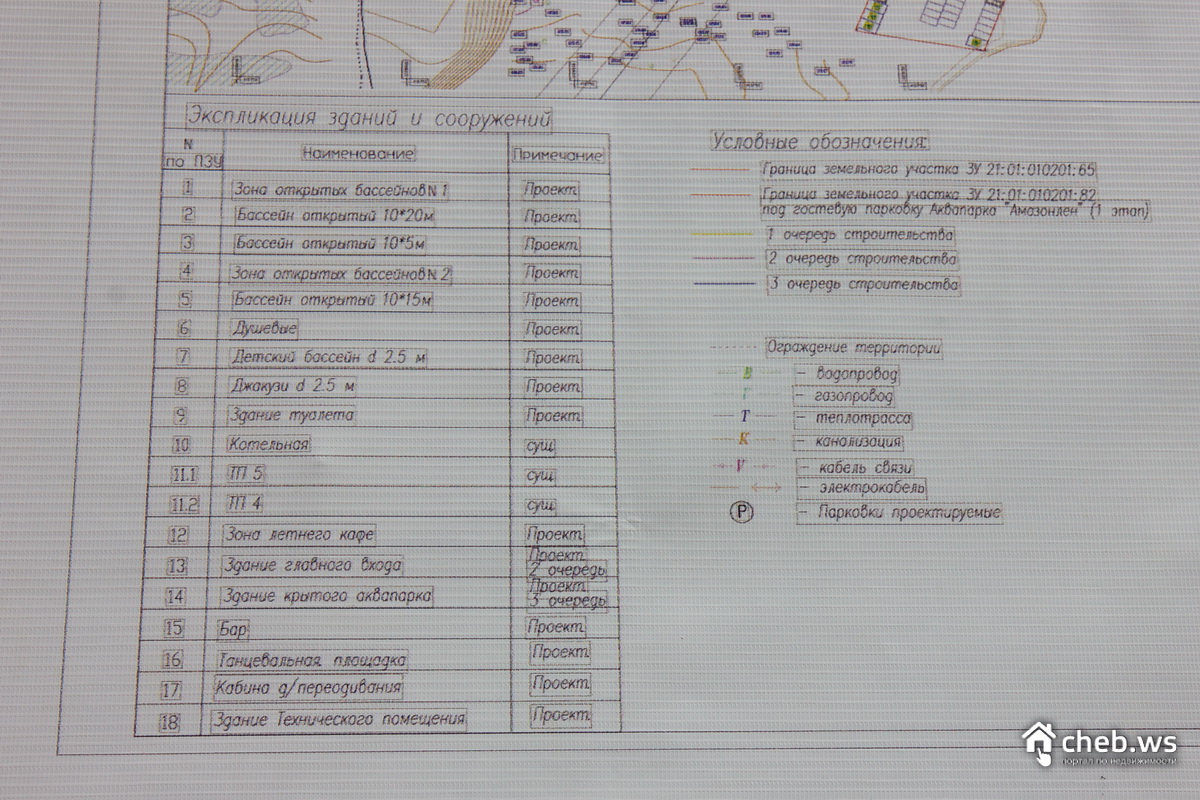 Экспликация зданий и сооружений
N по ПЗУ Наименование Примечание
1 Зона открытых бассейнов N 1 Проект
2 Бассейн открытый 10*20м Проект
3 Бассейн открытый 10*5м Проект
4 Зона открытых бассейнов N 2 Проект
5 Бассейн открытый 10*15м Проект
6 Душевые Проект
7 Детский бассейн d 2.5 м Проект
8 Джакузи d 2.5 м Проект
9 Здание туалета Проект
10 Котельная сущ
11.1 ТП 5 сущ
11.2 ТП 4 сущ
12 Зона летнего кафе Проект
13 Здание главного входа Проект 2 очередь
14 Здание крытого аквапарка Проект 3 очередь
15 Бар Проект
16 Танцевальная площадка Проект
17 Кабина д/переодивания Проект
18 Здание Технического помещения Проект
Условные обозначения:
Граница земельного участка ЗУ 21:01:010201:65
Граница земельного участка ЗУ 21:01:010201:82
под гостевую парковку Аквапарка "Амазонлен" (1 этап)
1 очередь строительства
2 очередь строительства
3 очередь строительства
Ограждение территории
В - водопровод
Г - газопровод
Т - теплотрасса
К - канализация
V - кабель связи
- электрокабель
Р - Парковки проектируемые
cheb.ws
портал по недвижимости